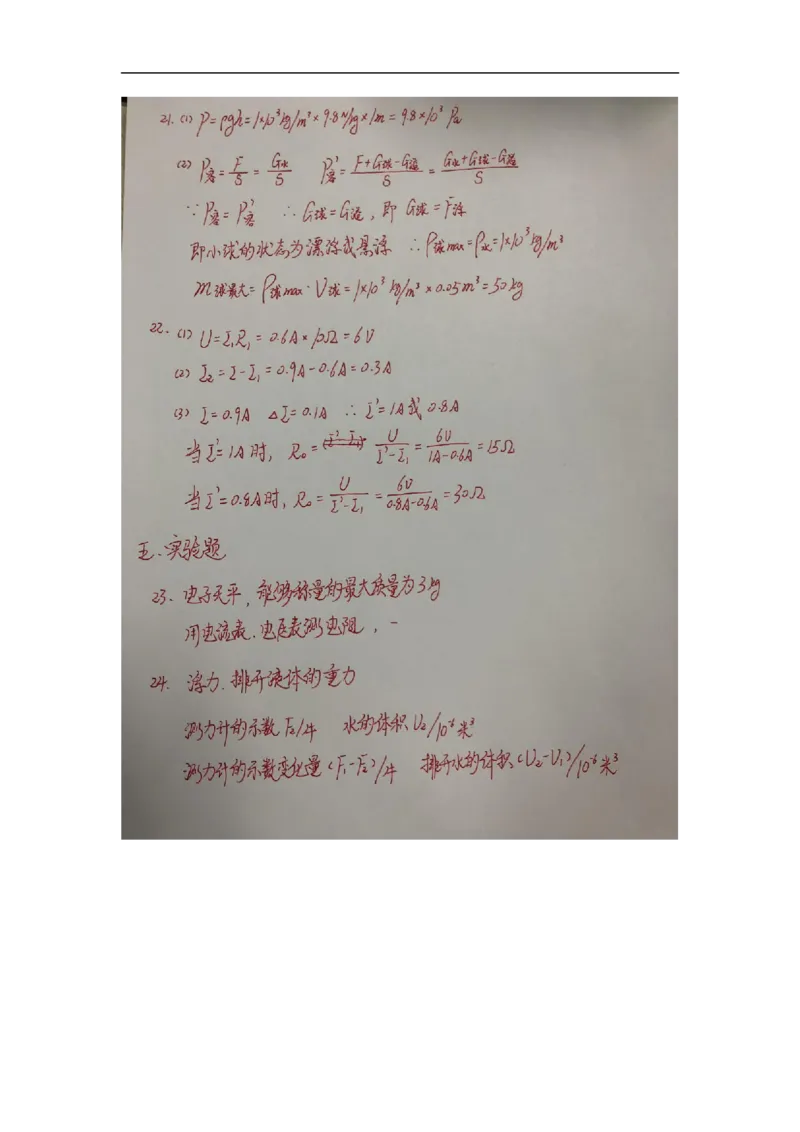 21. (1) P=ρgh=1×10³kg/m³×9.8N/kg×1m=9.8×10³Pa
(2) P容=F/S=G水/S P容'=(F+G球-G溢)/S=(G水+G球-G溢)/S
∵P容=P容' ∴G球=G溢，即G球=F浮
即小球的状态为漂浮或悬浮 ∴ρ球max=ρ水=1×10³kg/m³
m球最大=ρ球max·V球=1×10³kg/m³×0.05m³=50kg
22. (1) U=I₁R₁=0.6A×10Ω=6V
(2) I₂=I-I₁=0.9A-0.6A=0.3A
(3) I=0.9A ΔI=0.1A ∴I'=1A或0.8A
当I'=1A时，R₀=U/(I'-I₁)=6V/(1A-0.6A)=15Ω
当I'=0.8A时，R₀=U/(I'-I₁)=6V/(0.8A-0.6A)=30Ω
五、实验题
23. 电子天平，能够称量的最大质量为3kg
用电流表、电压表测电阻，-
24. 浮力、排开液体的重力
测力计的示数F₂/牛 水的体积V₂/10⁻⁶米³
测力计的示数变化量(F₁-F₂)/牛 排开水的体积(V₂-V₁)/10⁻⁶米³